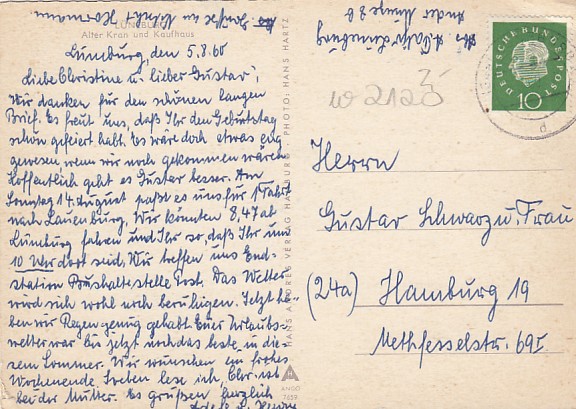 LÜNEBURG
Alter Kran und Kaufhaus
Lüneburg, den 5.8.60
Liebe Christine u. lieber Gustav,
Wir danken für den schönen langen
Brief. Es freut uns, daß Ihr den Geburtstag
schön gefeiert habt. Es wäre doch etwas eng
gewesen, wenn wir noch gekommen wären
Hoffentlich geht es Gustav besser. Am
Sonntag 14. August paßt es uns für 1 Fahrt
nach Lauenburg. Wir könnten 8,47 ab
Lüneburg fahren und Ihr so, daß Ihr um
10 Uhr dort seid. Wir treffen uns End-
station Bushaltestelle Post. Das Wetter
wird sich wohl noch beruhigen. Jetzt ha-
ben wir Regen genug gehabt. Euer Urlaubs-
wetter war bis jetzt noch das beste in die-
sem Sommer. Wir wünschen ein frohes
Wochenende. Soeben lese ich, Chr. ist
bei der Mutter. Es grüßen herzlich
HANS ANDRES VERLAG HAMBURG · PHOTO: HANS HARTZ
ANDO
7659
Lüneburg
An der Münze 8
w 2120
DEUTSCHE BUNDESPOST
10
d
Herrn
Gustav Schwarz u. Frau
(24a) Hamburg 19
Methfesselstr. 69 I